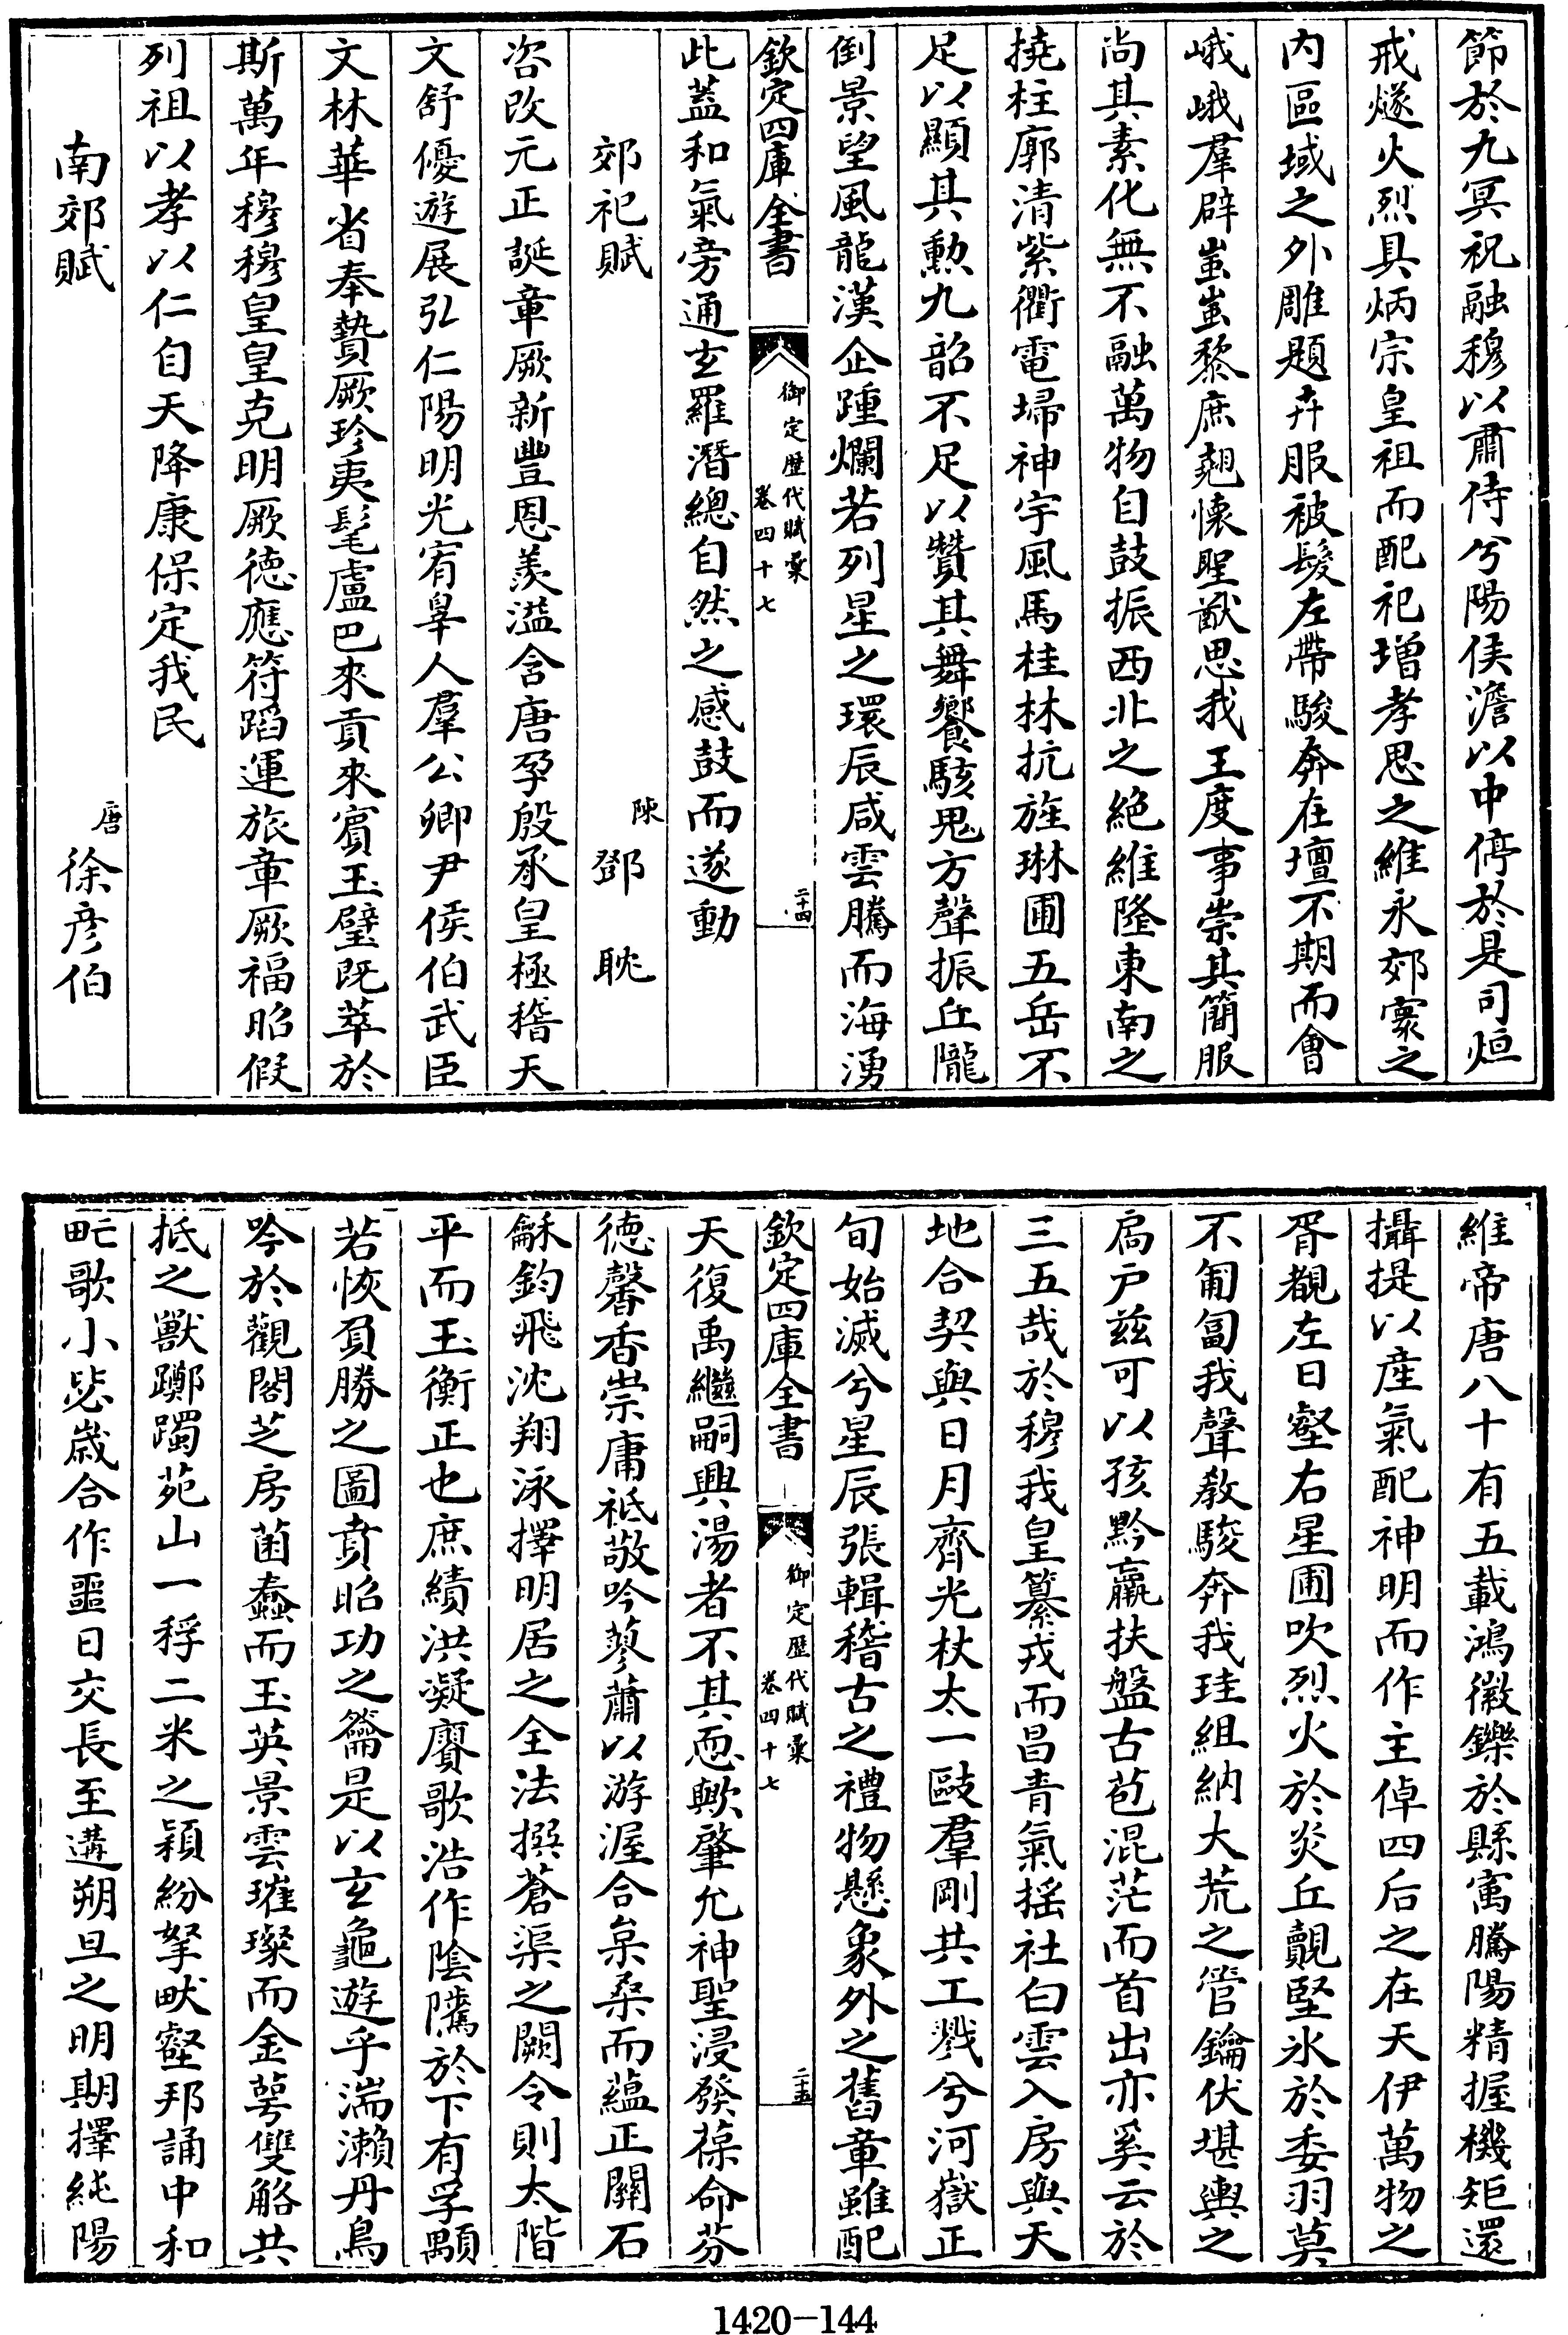 節於九冥祝融穆以肅侍兮陽侯澹以中停於是司烜
戒燧火烈具炳宗皇祖而配祀增孝思之維永郊寰之
内區域之外雕題卉服被髮左帶駿奔在壇不期而會
峨峨羣辟蚩蚩黎庶翹懐聖猷思我王度事崇其簡服
尚其素化無不融萬物自鼓振西北之絶維隆東南之
撓柱廓清紫衢電埽神宇風馬桂林抗旌琳圃五岳不
足以顯其勲九韶不足以贊其舞饗駭鬼方聲振丘隴
倒景望風龍漢企踵爛若列星之環辰咸雲騰而海湧
欽定四庫全書
御定歴代賦彙
卷四十七
二十四
此蓋和氣旁通玄羅潛總自然之感鼓而遂動
郊祀賦
陳
鄧耽
咨改元正誕章厥新豐恩羨溢含唐孕殷承皇極稽天
文舒優遊展弘仁陽明光宥辠人羣公卿尹侯伯武臣
文林華省奉贄厥珍夷髦盧巴來貢來賓玉璧既萃於
斯萬年穆穆皇皇克明厥徳應符蹈運旅章厥福昭假
列祖以孝以仁自天降康保定我民
南郊賦
唐
徐彦伯
維帝唐八十有五載鴻徽鑠於縣㝢騰陽精握機矩還
攝提以産氣配神明而作主倬四后之在天伊萬物之
胥覩左日壑右星圃吹烈火於炎丘覿堅氷於委羽莫
不匍匐我聲教駿奔我珪組納大荒之管鑰伏堪輿之
扄户兹可以孩黔羸扶盤古苞混茫而首出亦奚云於
三五哉於穆我皇纂戎而昌青氣摇社白雲入房與天
地合契與日月齊光杖太一敺羣剛共工戮兮河嶽正
旬始滅兮星辰張輯稽古之禮物懸象外之舊章雖配
欽定四庫全書
御定歴代賦彙
卷四十七
二十五
天復禹繼嗣興湯者不其恧歟肇允神聖浸發葆命芬
徳馨香崇庸祗敬吟蓼蕭以游渥合枲桑而藴正關石
龢鈞飛沈翔泳擇明居之全法撰蒼渠之闕令則太階
平而玉衡正也庶績洪凝賡歌浩作陰隲於下有孚顒
若恢負勝之圖賁昭功之籥是以玄龜遊乎湍瀨丹鳥
吟於觀閣芝房菌蠢而玉英景雲璀璨而金萼雙觡共
抵之獸躑躅苑山一稃二米之穎紛拏畎壑邦誦中和
甿歌小毖嵗合作噩日交長至遘朔旦之明期擇純陽
1420-144